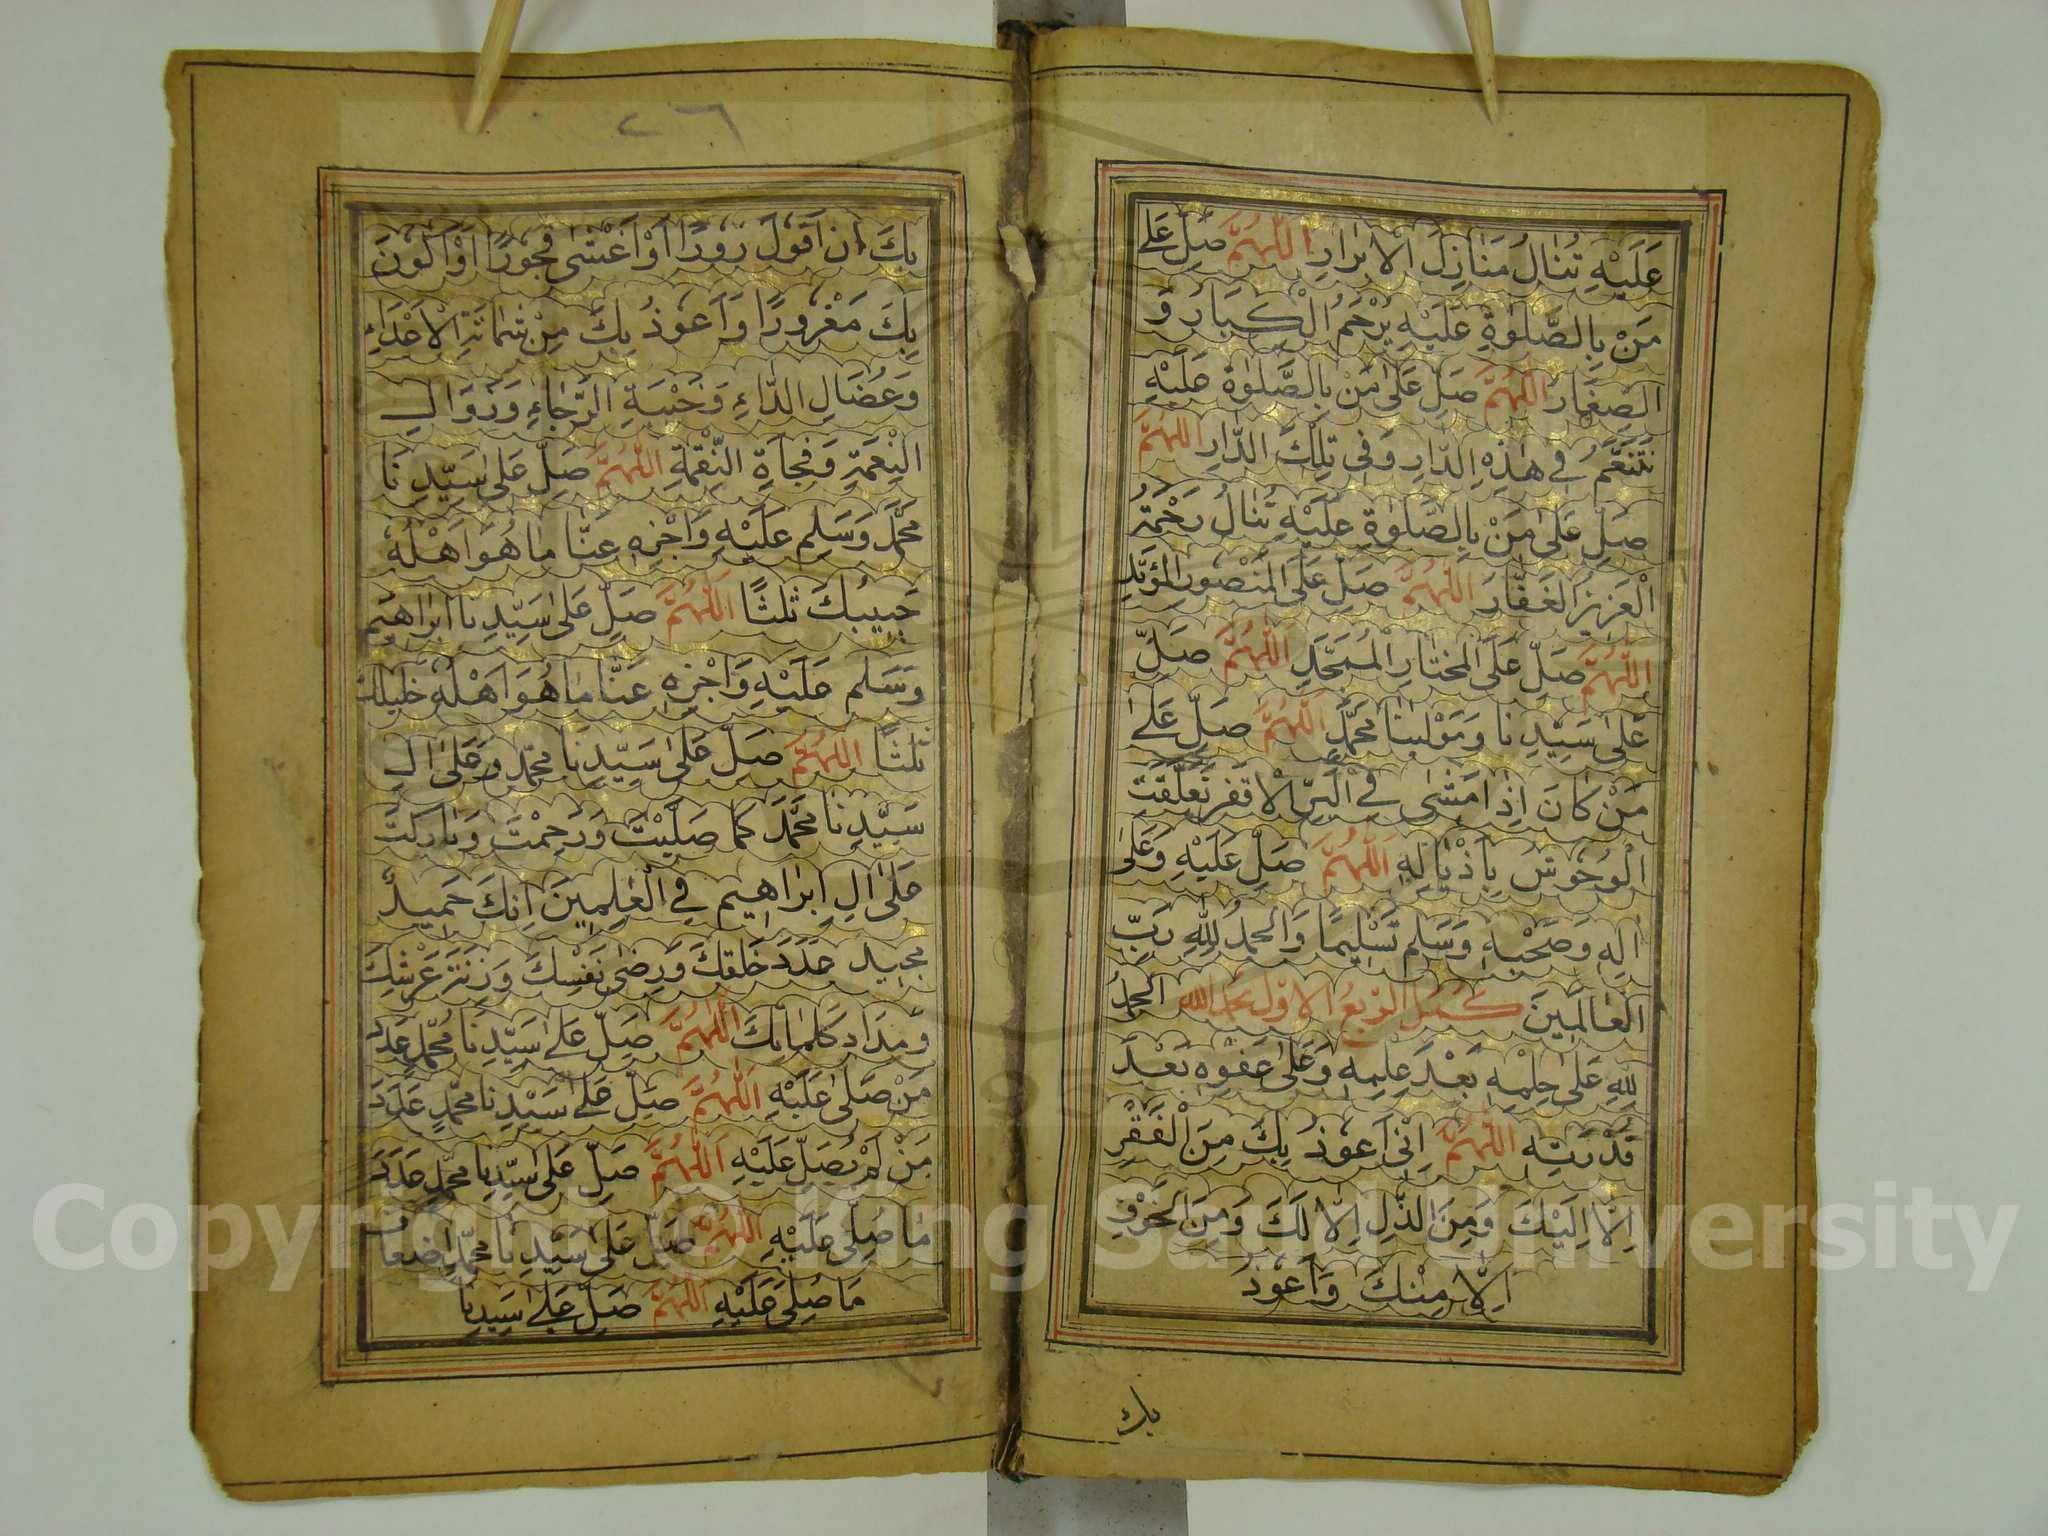 عَلَيْهِ تُنَالُ مَنَازِلَ الْاَبْرَارِ اَللّٰهُمَّ صَلِّ عَلٰى
مَنْ بِالصَّلٰوةِ عَلَيْهِ يُرْحَمُ الْكِبَارُ وَ
الصِّغَارُ اَللّٰهُمَّ صَلِّ عَلٰى مَنْ بِالصَّلٰوةِ عَلَيْهِ
نَتَنَعَّمُ فِى هٰذِهِ الدَّارِ وَفِى تِلْكَ الدَّارِ اَللّٰهُمَّ
صَلِّ عَلٰى مَنْ بِالصَّلٰوةِ عَلَيْهِ تُنَالُ رَحْمَةُ
الْعَزِيزِ الْغَفَّارِ اَللّٰهُمَّ صَلِّ عَلَى الْمَنْصُورِ الْمُؤَيَّدِ
اَللّٰهُمَّ صَلِّ عَلَى الْمُخْتَارِ الْمُمَجَّدِ اَللّٰهُمَّ صَلِّ
عَلٰى سَيِّدِنَا وَمَوْلٰينَا مُحَمَّدٍ اَللّٰهُمَّ صَلِّ عَلٰى
مَنْ كَانَ اِذَا مَشٰى فِى الْبَرِّ الْاَقْفَرِ تَعَلَّقَتْ
الْوُحُوشُ بِاَذْيَالِهِ اَللّٰهُمَّ صَلِّ عَلَيْهِ وَعَلٰى
اٰلِهِ وَصَحْبِهِ وَسَلِّمْ تَسْلِيمًا وَالْحَمْدُ لِلّٰهِ رَبِّ
الْعَالَمِينَ كمل الربع الاول بحمد الله اَلْحَمْدُ
لِلّٰهِ عَلٰى حِلْمِهِ بَعْدَ عِلْمِهِ وَعَلٰى عَفْوِهِ بَعْدَ
قُدْرَتِهِ اَللّٰهُمَّ اِنِّى اَعُوذُ بِكَ مِنَ الْفَقْرِ
اِلَّا اِلَيْكَ وَمِنَ الذُّلِّ اِلَّا لَكَ وَمِنَ الْخَوْفِ
اِلَّا مِنْكَ وَاَعُوذُ
بك
٢٦
بِكَ اَنْ اَقُولَ زُورًا اَوْ اَغْشٰى فُجُورًا اَوْ اَكُونَ
بِكَ مَغْرُورًا وَاَعُوذُ بِكَ مِنْ شَمَاتَةِ الْاَعْدَاءِ
وَعُضَالِ الدَّاءِ وَخَيْبَةِ الرَّجَاءِ وَزَوَالِ
النِّعْمَةِ وَفَجْاَةِ النِّقْمَةِ اَللّٰهُمَّ صَلِّ عَلٰى سَيِّدِنَا
مُحَمَّدٍ وَسَلِّمْ عَلَيْهِ وَاَجْزِهِ عَنَّا مَا هُوَ اَهْلُهُ
حَبِيبُكَ ثَلٰثًا اَللّٰهُمَّ صَلِّ عَلٰى سَيِّدِنَا اِبْرَاهِيمَ
وَسَلِّمْ عَلَيْهِ وَاَجْزِهِ عَنَّا مَا هُوَ اَهْلُهُ خَلِيلُكَ
ثَلٰثًا اَللّٰهُمَّ صَلِّ عَلٰى سَيِّدِنَا مُحَمَّدٍ وَعَلٰى اٰلِ
سَيِّدِنَا مُحَمَّدٍ كَمَا صَلَّيْتَ وَرَحِمْتَ وَبَارَكْتَ
عَلٰى اٰلِ اِبْرَاهِيمَ فِى الْعٰلَمِينَ اِنَّكَ حَمِيدٌ
مَجِيدٌ عَدَدَ خَلْقِكَ وَرِضٰى نَفْسِكَ وَزِنَةَ عَرْشِكَ
وَمِدَادَ كَلِمَاتِكَ اَللّٰهُمَّ صَلِّ عَلٰى سَيِّدِنَا مُحَمَّدٍ عَدَدَ
مَنْ صَلّٰى عَلَيْهِ اَللّٰهُمَّ صَلِّ عَلٰى سَيِّدِنَا مُحَمَّدٍ عَدَدَ
مَنْ لَمْ يُصَلِّ عَلَيْهِ اَللّٰهُمَّ صَلِّ عَلٰى سَيِّدِنَا مُحَمَّدٍ عَدَدَ
مَا صُلِّىَ عَلَيْهِ اَللّٰهُمَّ صَلِّ عَلٰى سَيِّدِنَا مُحَمَّدٍ اَضْعَافَ
مَا صُلِّىَ عَلَيْهِ اَللّٰهُمَّ صَلِّ عَلٰى سَيِّدِنَا
Copyright © King Saud University